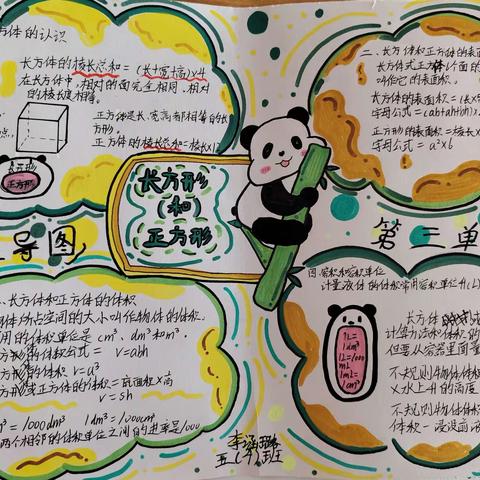 方体的认识
长方体的棱长总和=(长+宽+高)×4
在长方体中,相对的面完全相同,相对
的棱长度相等。
正方体是长、宽、高都相等的长
方形。
正方体的棱长总和=棱长×1
点
长方形
正方形
二、长方体和正方体的表面
长方体或正方体6个面的
叫作它的表面积。
长方体的表面积=(长×
字母公式=(ab+ah+bh)×
正方形的表面积=棱长×
字母公式=a²×6
长方形
(和)
正方形
导图
第三单
、长方体和正方体的体积
体所占空间的大小叫作物体的体积.
用的体积单位是cm³、dm³和m³.
方形的体积公式= V=abh
方体的体积= V=a³
方形或正方体的体积=底面积×高
V=sh
m³=1000dm³ 1dm³=1000cm³
两个相邻的体积单位之间的进率是1000
四.容积和容积单位
计量液体的体积常用容积单位升(L)
1L=
1dm³
1L=1000
mL
1mL=
1cm³
长方体
计算方法和体积的
但要从容器里面量
不规则物体体积
×水上升的高度
不规则物体体积
体积-浸没前
李涵
五(4)班